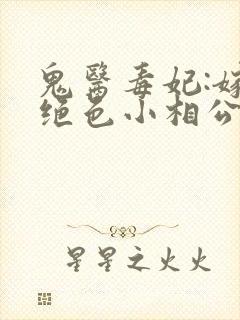 鬼醫毒妃:嫁
绝色小相公
星星之火火